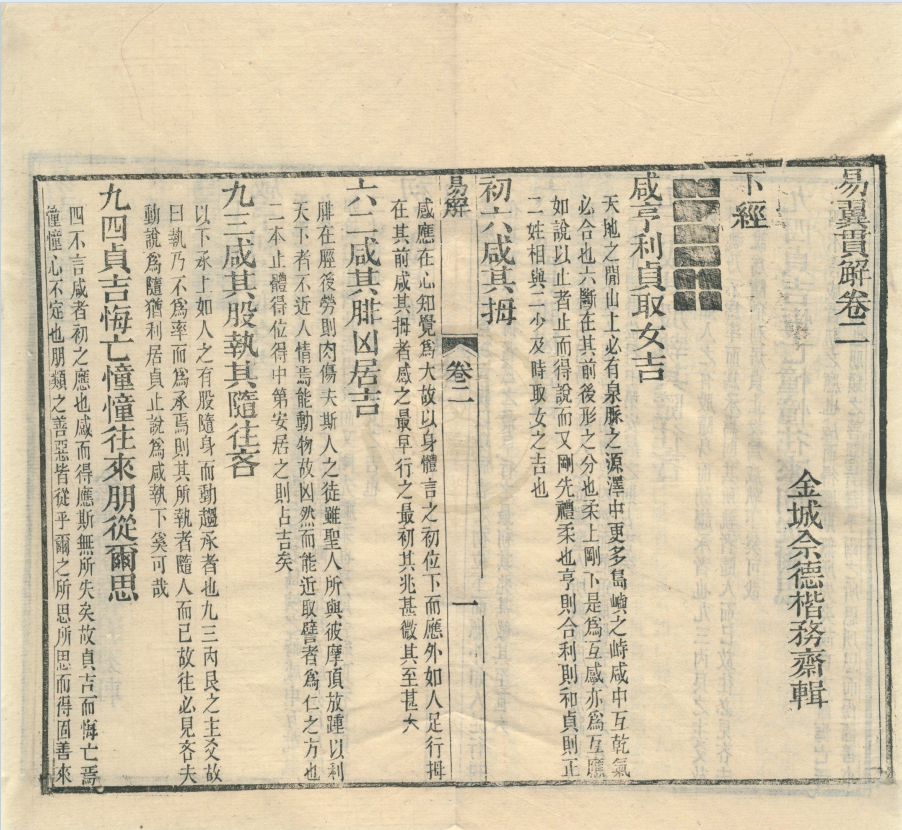 易翼貫解卷二
金城佘德楷務齋輯
下經
咸亨利貞取女吉
天地之閒山上必有泉脈之源澤中更多島嶼之峙咸中互乾氣
必合也六斷在其前後形之分也柔上剛下是為互感亦為互應
如說以止者止而得說而又剛先禮柔也亨則合利則和貞則正
二姓相與二少及時取女之吉也
初六咸其拇
易解
卷二
一
感應在心知覺為大故以身體言之初位下而應外如人足行拇
在其前咸其拇者感之最早行之最初其兆甚微其至甚大
六二咸其腓凶居吉
腓在脛後勞則肉傷夫斯人之徒雖聖人所與彼摩頂放踵以利
天下者不近人情焉能動物故凶然而能近取譬者為仁之方也
二本止體得位得中第安居之則占吉矣
九三咸其股執其隨往吝
以下承上如人之有股隨身而動趨承者也九三內艮之主爻故
曰執乃不為率而為承焉則其所執者隨人而已故往必見吝夫
動說為隨猶利居貞止說為咸執下奚可哉
九四貞吉悔亡憧憧往來朋從爾思
四不言咸者初之應也感而得應斯無所失矣故貞吉而悔亡焉
憧憧心不定也朋類之善惡皆從乎爾之所思所思而得固善來